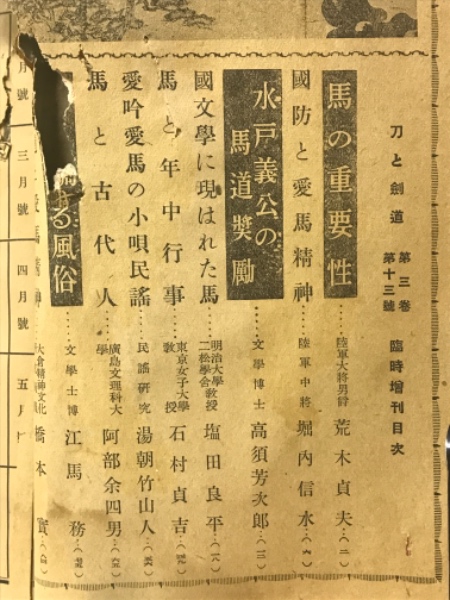 刀と劍道 第三卷 第十三號 臨時增刊目次
馬の重要性 陸軍大將男爵 荒木貞夫…(二)
國防と愛馬精神 陸軍中將 堀内信水…(六)
水戸義公の馬道獎勵 文學博士 高須芳次郎…(一二)
國文學に現はれた馬 明治大學教授 二松學舍 塩田良平…(一八)
馬と年中行事 東京女子大學教授 石村貞吉
愛吟愛馬の小唄民謠 民謠研究 湯朝竹山人
馬と古代人 廣島文理科大學 阿部余四男
る風俗 文學士博 江馬務
橋本實
月號 三月號 四月號 五月